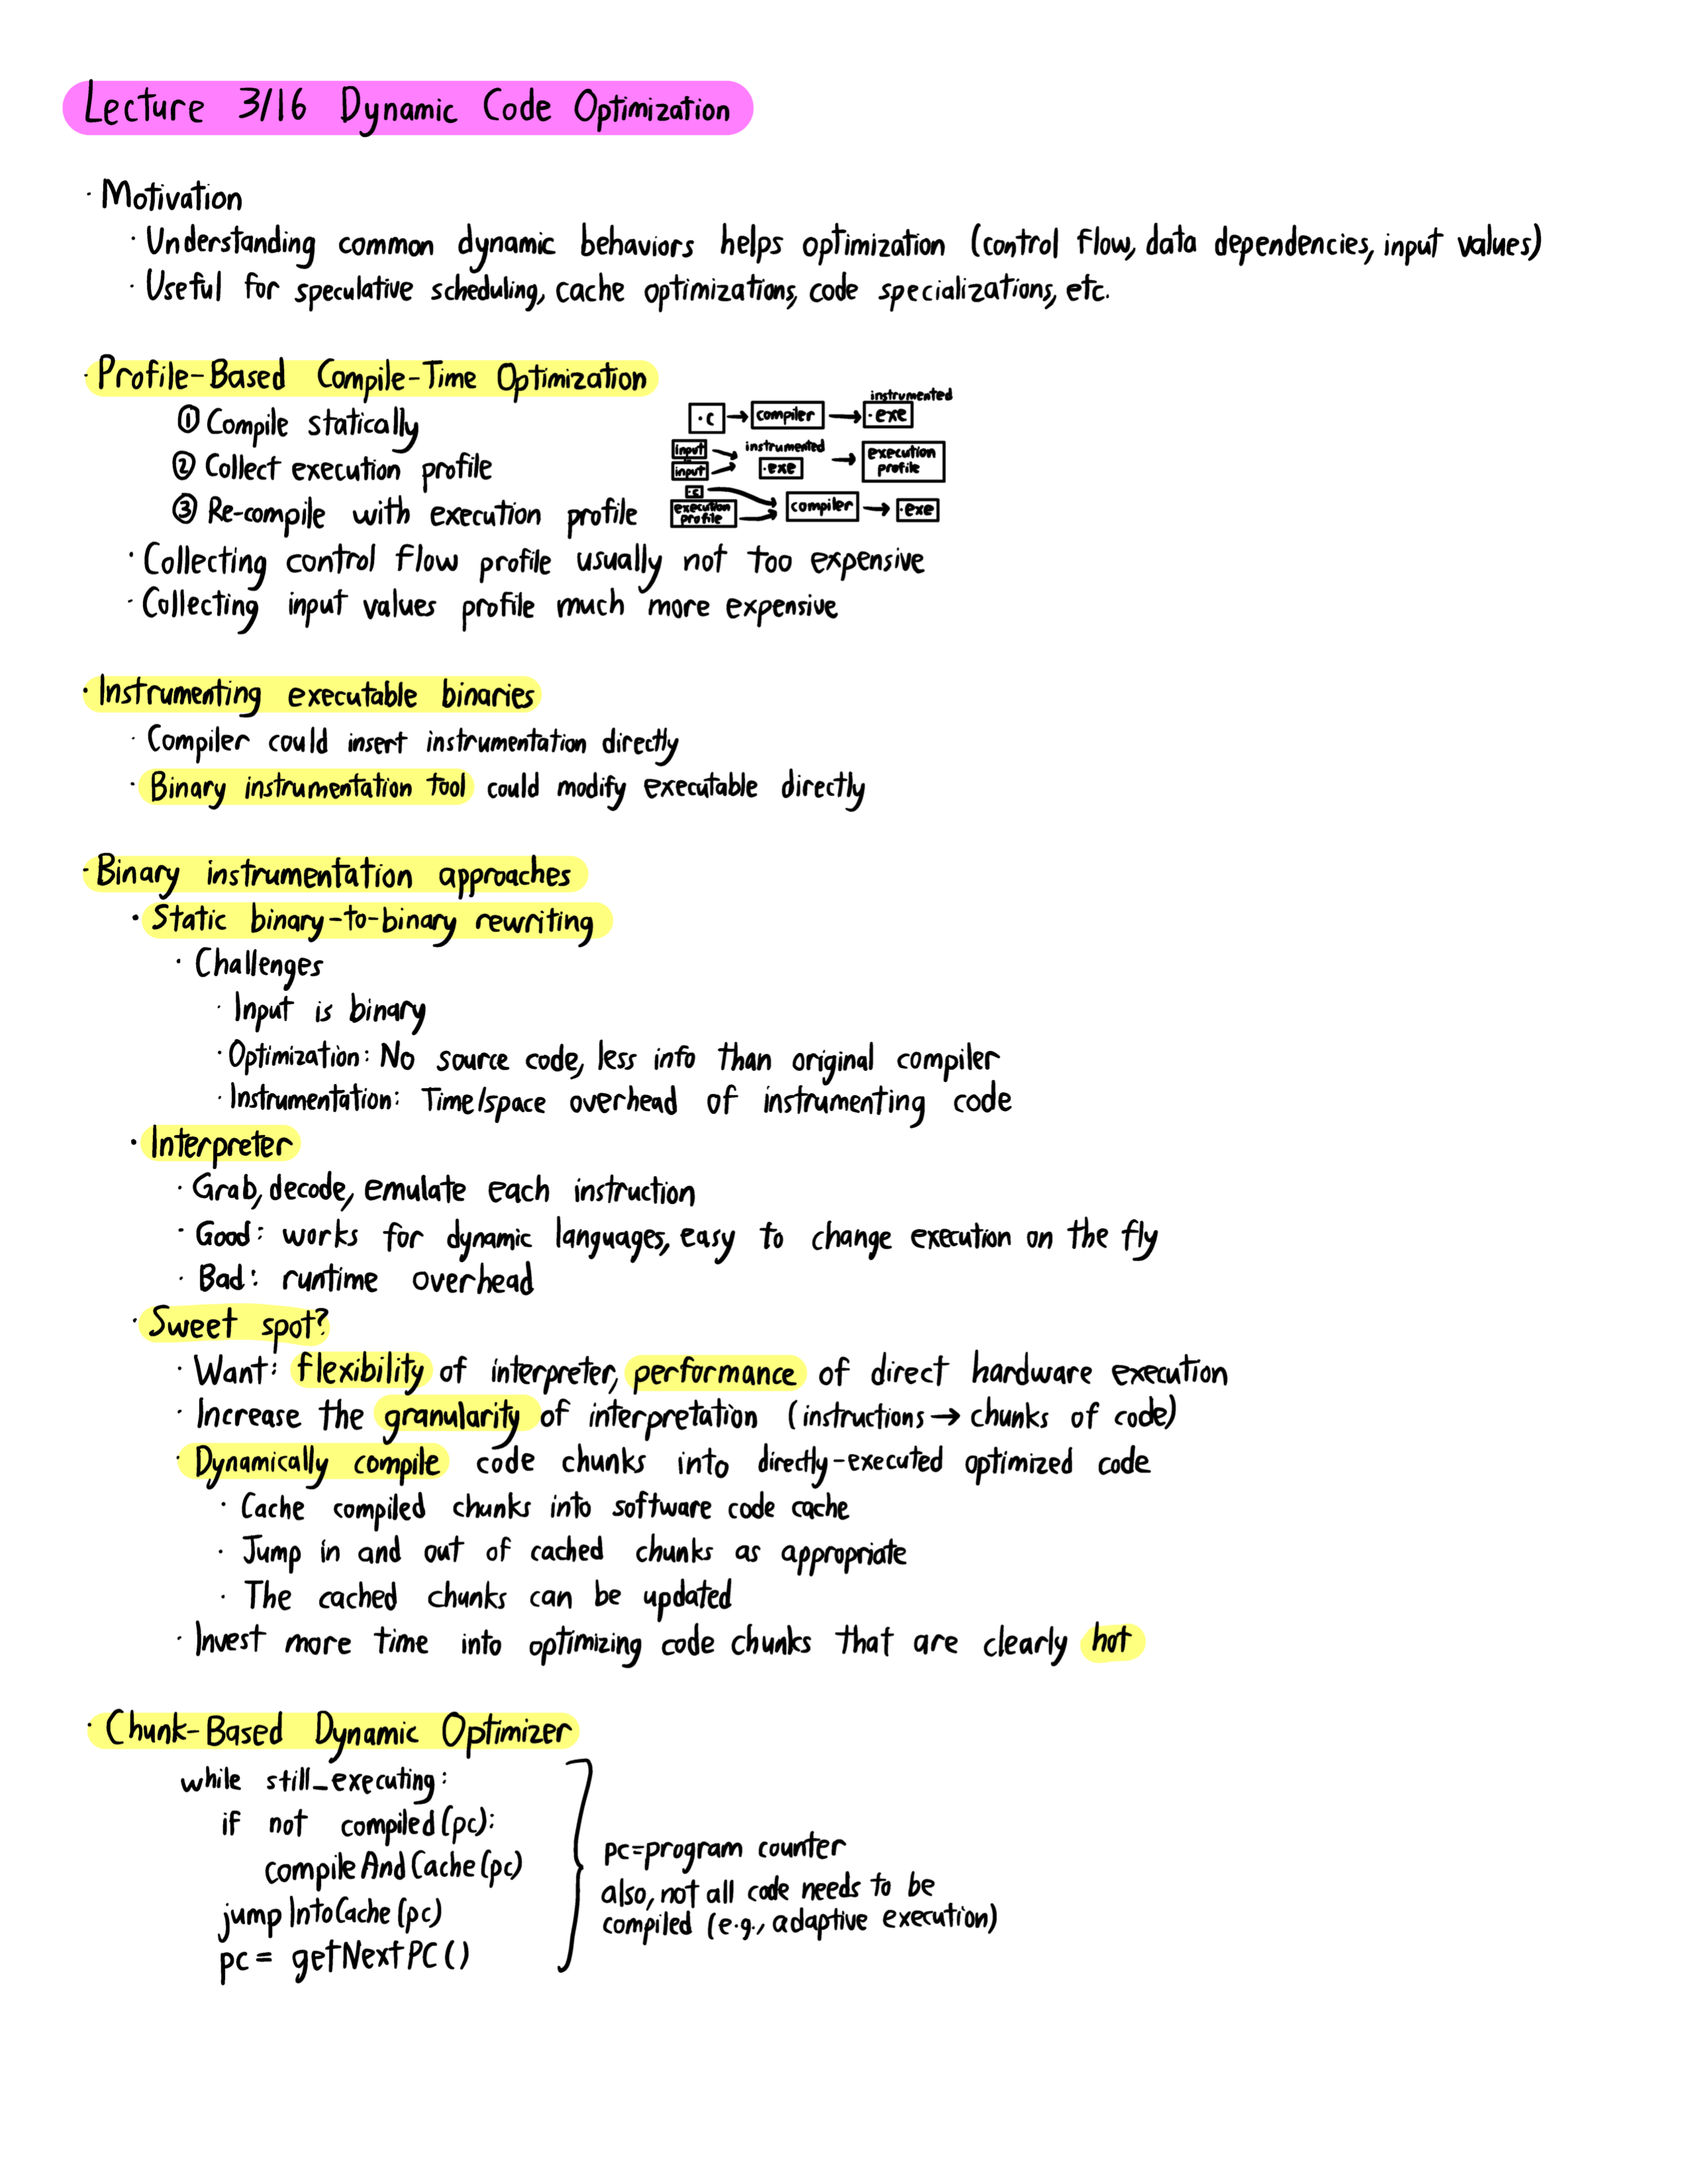 Lecture 3/16 Dynamic Code Optimization
· Motivation
· Understanding common dynamic behaviors helps optimization (control flow, data dependencies, input values)
· Useful for speculative scheduling, cache optimizations, code specializations, etc.
· Profile-Based Compile-Time Optimization
① Compile statically
.c → compiler → instrumented .exe
② Collect execution profile
input input → instrumented .exe → execution profile
③ Re-compile with execution profile
.c execution profile → compiler → .exe
· Collecting control flow profile usually not too expensive
· Collecting input values profile much more expensive
· Instrumenting executable binaries
· Compiler could insert instrumentation directly
· Binary instrumentation tool could modify executable directly
· Binary instrumentation approaches
· Static binary-to-binary rewriting
· Challenges
· Input is binary
· Optimization: No source code, less info than original compiler
· Instrumentation: Time/space overhead of instrumenting code
· Interpreter
· Grab, decode, emulate each instruction
· Good: works for dynamic languages, easy to change execution on the fly
· Bad: runtime overhead
· Sweet spot?
· Want: flexibility of interpreter, performance of direct hardware execution
· Increase the granularity of interpretation (instructions → chunks of code)
· Dynamically compile code chunks into directly-executed optimized code
· Cache compiled chunks into software code cache
· Jump in and out of cached chunks as appropriate
· The cached chunks can be updated
· Invest more time into optimizing code chunks that are clearly hot
· Chunk-Based Dynamic Optimizer
while still_executing:
if not compiled(pc):
compileAndCache(pc)
jumpIntoCache(pc)
pc = getNextPC()
pc=program counter
also, not all code needs to be
compiled (e.g., adaptive execution)